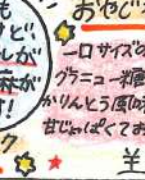 も
けど、
しが
麻が
す!
ク
おやじ
一口サイズの
グラニュー糖
かりんとう風味
甘じょっぱくてお
¥